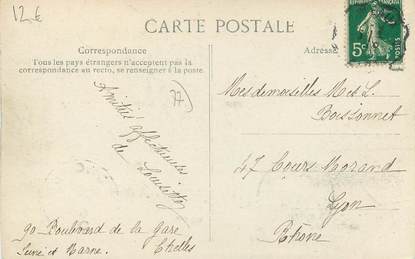 12 €
CARTE POSTALE
Correspondance
Tous les pays étrangers n'acceptent pas la
correspondance au recto, se renseigner à la poste.
Adresse
5c
POSTES
77
Amitiés affectueuses
de
90 Boulevard de la Gare
Seine et Marne. Chelles
Mesdemoiselles M et L
Boissonnet
47 Cours Morand
Lyon
Rhône